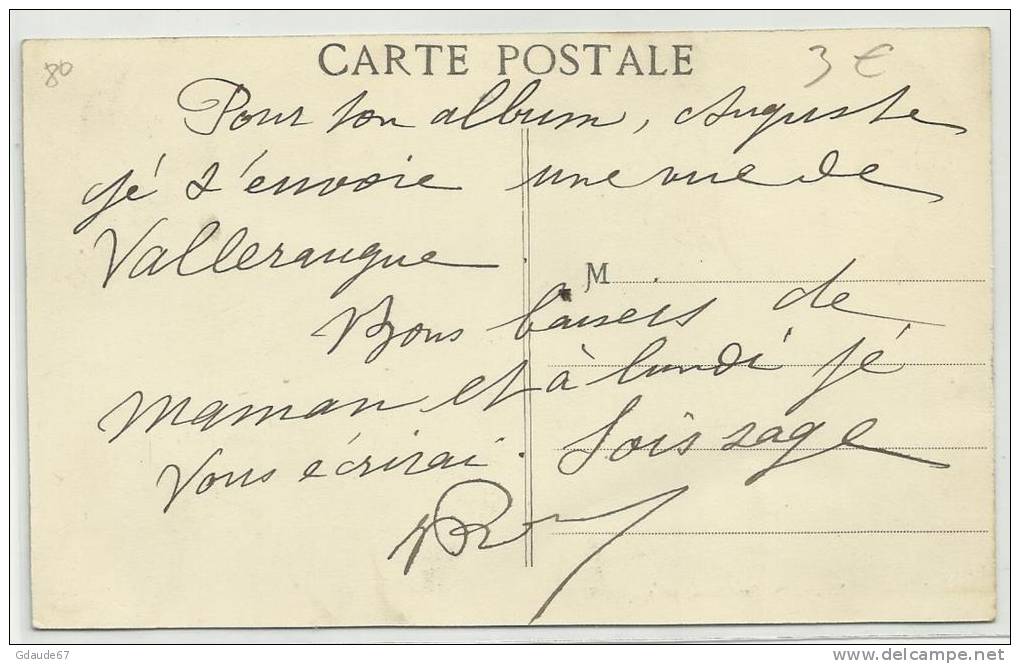 80
CARTE POSTALE
3 €
Pour ton album, Auguste
jé t'envoie une vue de
Valleraugue
M
Bons baisers de
maman et à lundi jé
vous écrirai. Sois sage
Gdaude67
www.delcampe.net